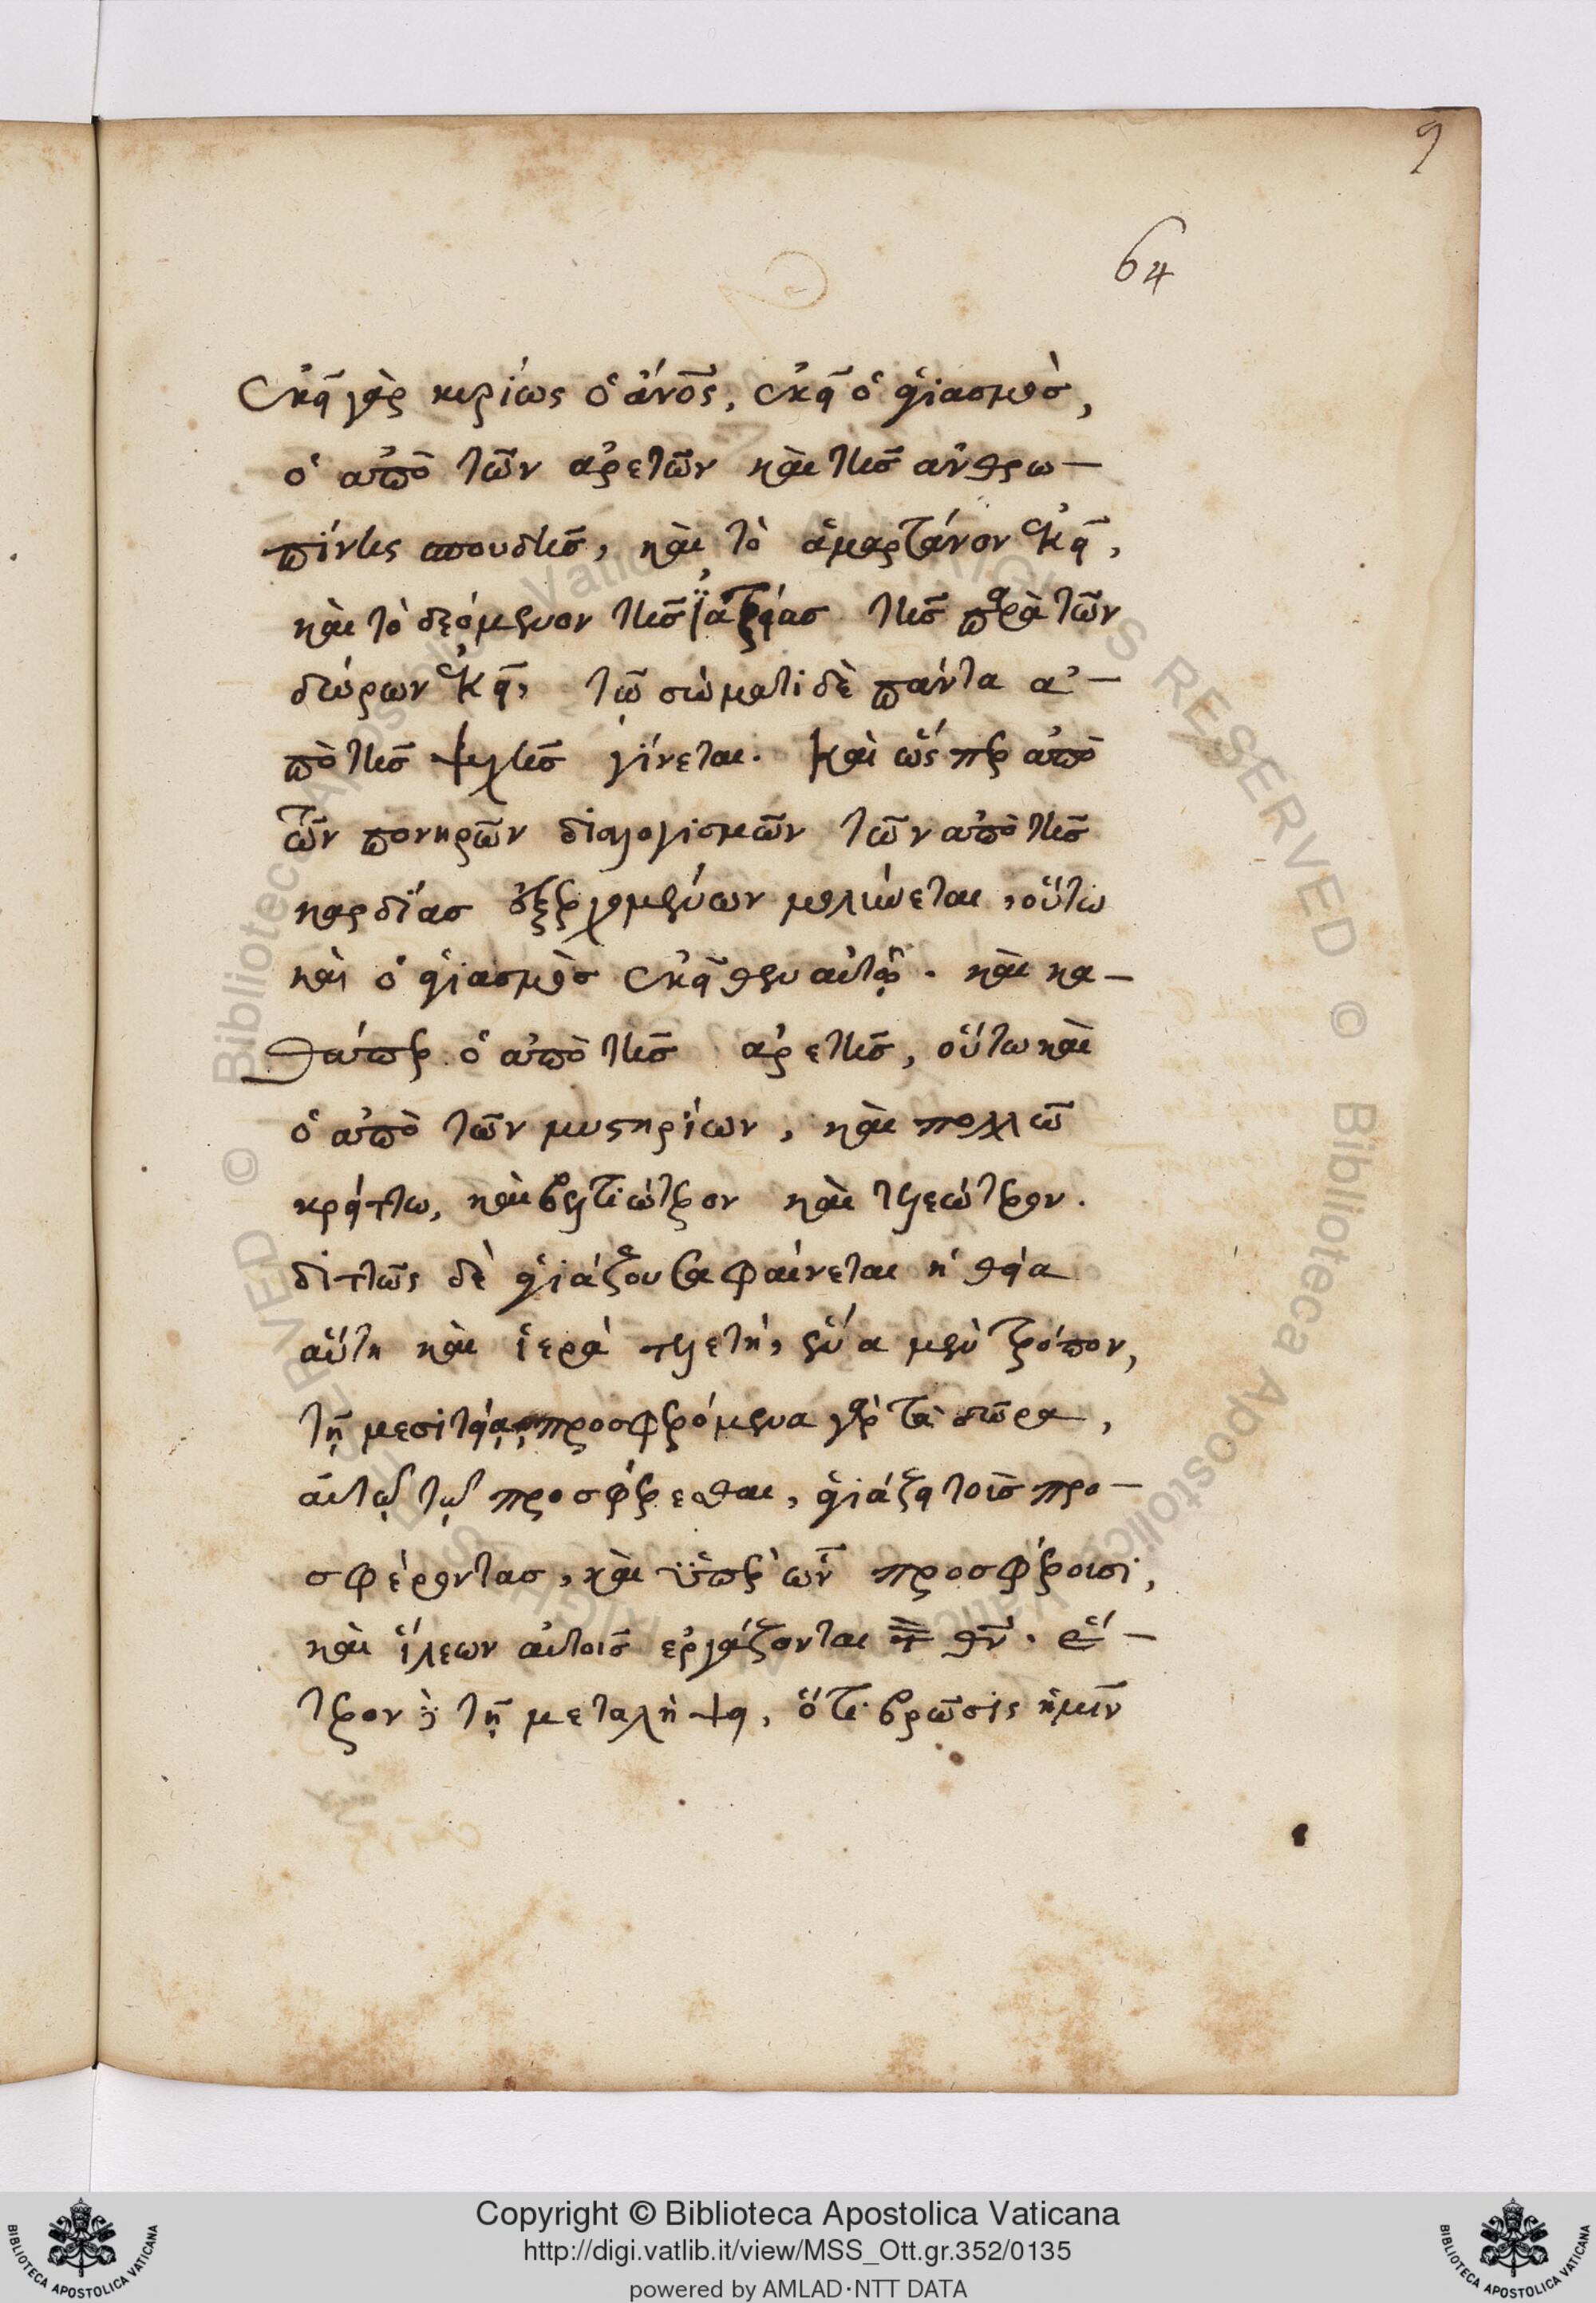 9
64
ἐκεῖ γὰρ κυρίως ὁ ἄνος, ἐκεῖ ὁ ἁγιασμὸσ,
ὁ ἀπὸ τῶν ἀρετῶν καὶ τῆσ ἀνθρω—
πίνης σπουδῆσ, καὶ τὸ ἁμαρτάνον ἐκεῖ,
καὶ τὸ δεόμενον τῆσ ἰατρείασ τῆσ παρὰ τῶν
δώρων ἐκεῖ, τῶ σώματι δὲ πάντα ἀ—
πὸ τῆσ ψυχῆσ γίνεται. Καὶ ὥς περ ἀπὸ
τῶν πονηρῶν διαλογισμῶν τῶν ἀπὸ τῆσ
καρδίασ ἐξερχομένων μολύνεται, οὕτω
καὶ ὁ ἁγιασμὸσ ἐκεῖθεν αὐτῷ. καὶ κα—
θάπερ ὁ ἀπὸ τῆσ ἀρετῆσ, οὕτω καὶ
ὁ ἀπὸ τῶν μυστηρίων, καὶ πολλῶ
κρείττω, καὶ βελτιώτερον καὶ τελεώτερον.
διττῶς δὲ ἁγιάζουσα φαίνεται ἡ θεία
αὕτη καὶ ἱερὰ τελετὴ, ἕνα μὲν τρόπον,
τῇ μεσιτείᾳ, προσφερόμενα γὰρ τὰ δῶρα,
αὐτῷ τῷ προσφέρεσθαι, ἁγιάζει τοὺσ προ—
σφέροντασ, καὶ ὑπὲρ ὧν προσφέρουσι,
καὶ ἵλεων αὐτοῖσ ἐργάζονται τὸν θν. ἕ—
τερον δὲ τῇ μεταλήψει, ὅτι βρῶσις ἡμῖν
Copyright © Biblioteca Apostolica Vaticana
http://digi.vatlib.it/view/MSS_Ott.gr.352/0135
powered by AMLAD·NTT DATA